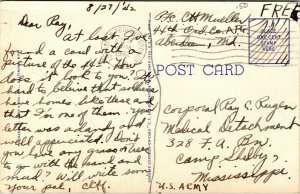 8/27/42
Dear Ray,
at last I've
found a card with a
picture of the 44th. How
does it look to you? It's
hard to believe that soldiers
have homes like these and
that I'm one of them. Your
letter was a dandy and
well appreciated. Don't
you have any
to go with the hand and
maid? Will write soon
your pal, Cliff.
Pfc. CH Mueller
44th Ord. Co.
Aberdeen, Md.
FREE
POST CARD
Corporal Ray C. Rugen
Medical Detachment
328 F.A. Bn.
Camp Shelby,
Mississippi.
U.S. ARMY